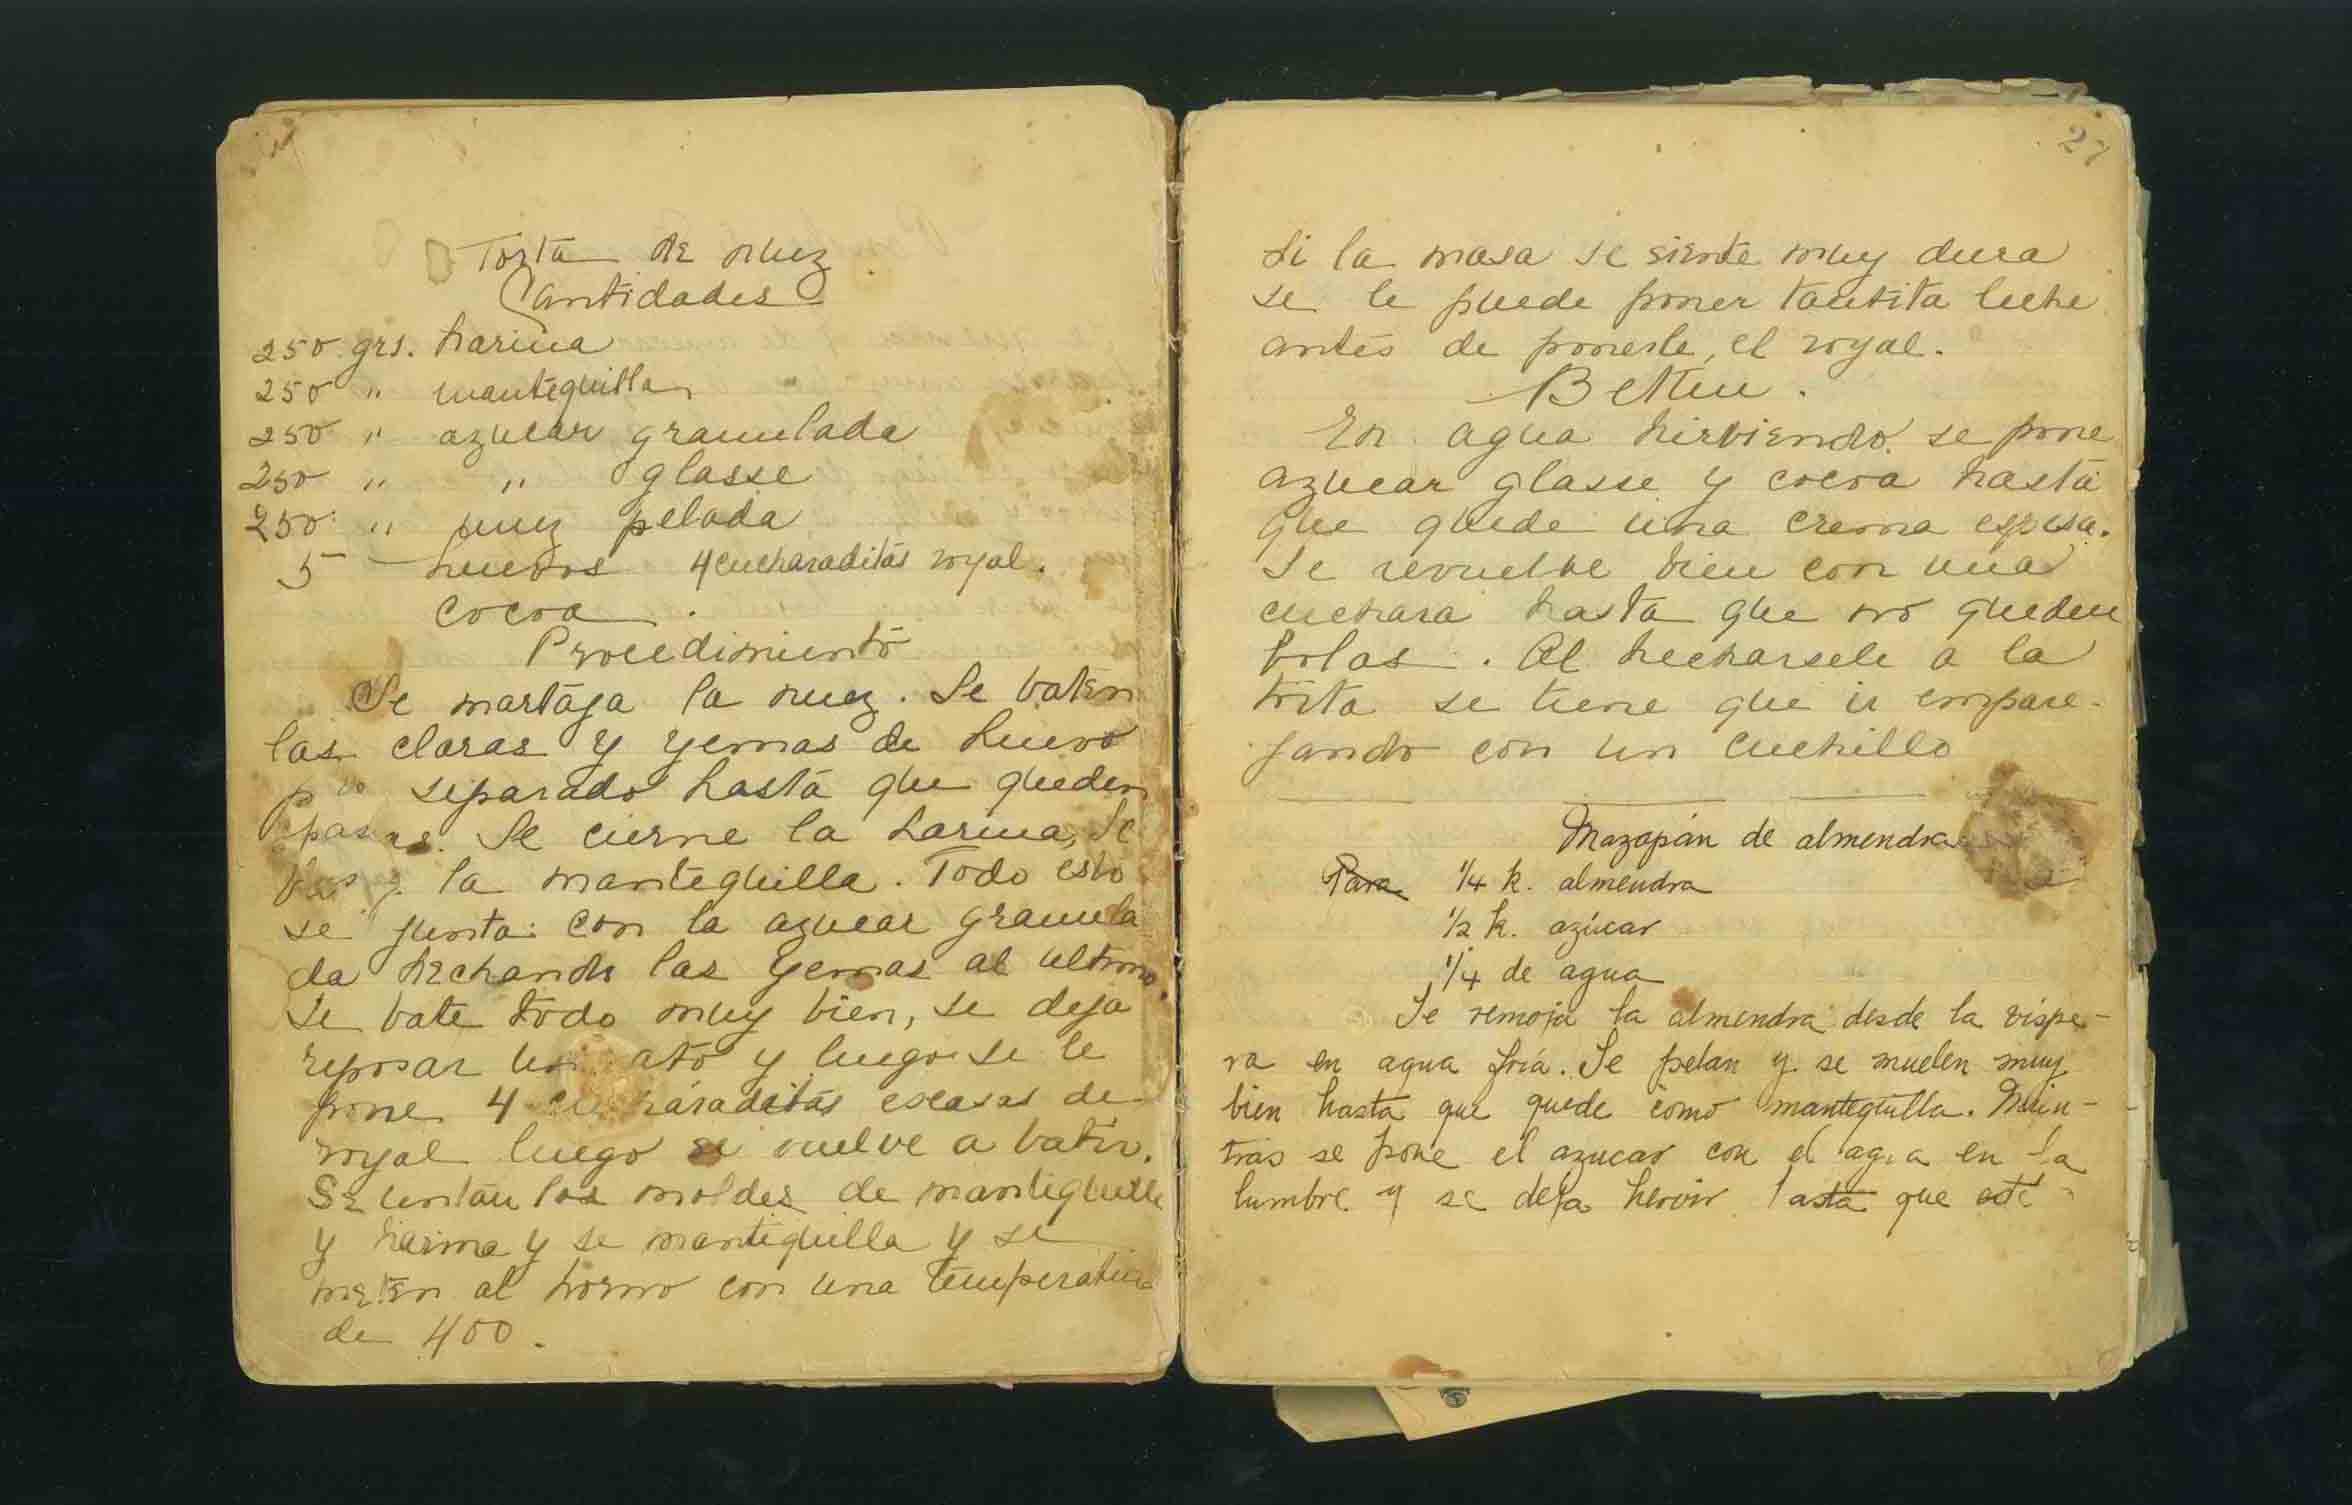 Torta de nuez
Cantidades
250 grs. harina
250 " mantequilla
250 " azucar granulada
250 " " glasse
250 " nuez pelada
5 - huevos 4 cucharaditas royal.
cocoa.
Procedimiento
Se martaja la nuez. Se baten
las claras y yemas de huevo
separado hasta que queden
Se cierne la harina, Se
la mantequilla. Todo esto
se junta con la azucar granula
da hechando las yemas al ultimo.
Se bate todo muy bien, se deja
reposar un rato y luego se le
pone 4 cucharaditas escasas de
royal luego se vuelve a batir.
Se untan los moldes de mantequilla
y harina y se mantequilla y se
meten al horno con una temperatura
de 400.
27
Si la masa se siente muy dura
se le puede poner tantita leche
antes de ponerle, el royal.
Betun.
En agua hirviendo se pone
azucar glasse y cocoa hasta
que quede una crema espesa.
Se revuelve bien con una
cuchara hasta que no queden
bolas. Al hecharsele a la
torta se tiene que ir empare-
jando con un cuchillo
Mazapán de almendra
Para 1/4 k. almendra
1/2 k. azúcar
1/4 de agua
Se remoja la almendra desde la víspe-
ra en agua fría. Se pelan y se muelen muy
bien hasta que quede como mantequilla. Mien-
tras se pone el azucar con el agua en la
lumbre y se deja hervir hasta que esté